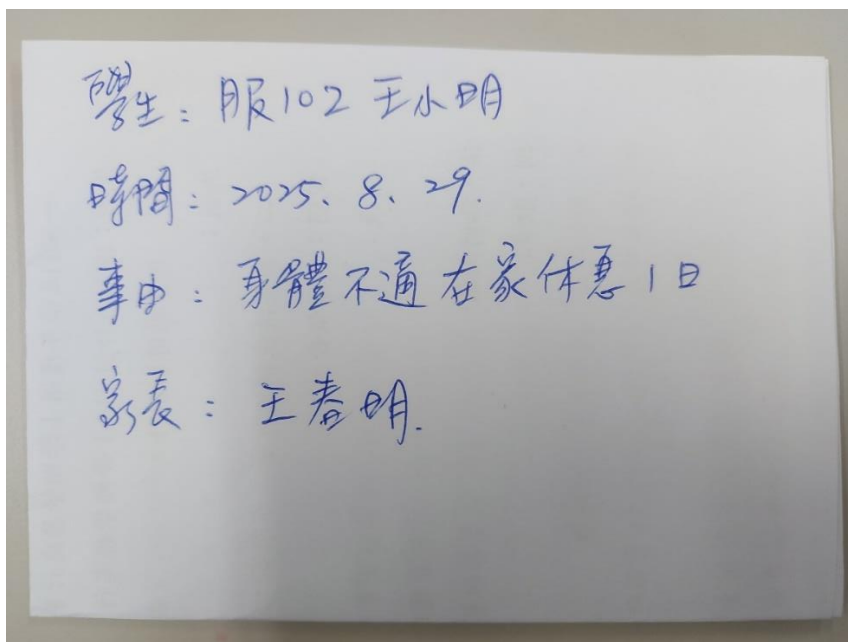 學生：服102 王小明
時間：2025、8、29.
事由：身體不適在家休息1日
家長：王春明.